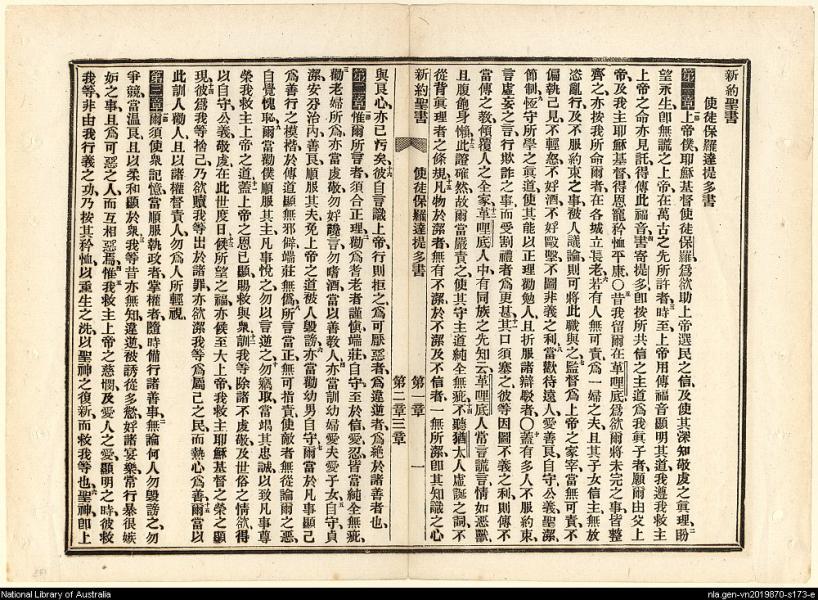 新約聖書
使徒保羅達提多書
第一章 上帝僕耶穌基督使徒保羅爲欲助上帝選民之信及使其深知敬虔之眞理盼
望永生卽無謊之上帝在萬古之先所許者時至上帝用傳福音顯明其道我遵我救主
上帝之命亦見託得傳此福音書寄提多卽按所共信之主道爲我眞子者願爾由父上
帝及我主耶穌基督得恩寵矜恤平康〇昔我留爾在革哩底爲欲爾將未完之事皆整
齊之亦按我所命爾者在各城立長老若有人無可責爲一婦之夫且其子女信主無放
恣亂行及不服約束之事被人議論則可將此職與之監督爲上帝之家宰當無可責不
偏執己見不輕怒不好酒不好毆擊不圖非義之利當歡待遠人愛善良自守公義聖潔
節制恆守所學之眞道使其能以正理勸勉人且折服諸辯駁者〇蓋有多人不服約束
言虛妄之言行欺詐之事而受割禮者爲更甚其口須塞之彼等因圖不義之利則傳不
當傳之敎傾覆人之全家革哩底人中有同族之先知云革哩底人常言謊言情如惡獸
且腹飽身惰此證確然故爾當嚴責之使其守主道純全無疵不聽猶太人虛誕之詞不
從背眞理者之條規凡物於潔者無有不潔於不潔及不信者一無所潔卽其知識之心
新約聖書 使徒保羅達提多書 第一章 第二章三章 一
與良心亦已污矣彼自言識上帝行則拒之爲可厭惡者爲違逆者爲絶於諸善者也
第二章 惟爾所言者須合正理勸爲耆老者謹愼端莊自守至於信愛忍皆當純全無疵
勸老婦所爲亦當虔敬勿好讒言勿嗜酒當以善敎人亦當訓幼婦愛夫愛子女自守貞
潔安分治內善良順服其夫免上帝之道被人毀謗亦當勸幼男自守爾當於凡事顯己
爲善行之模楷於傳道顯無邪僻端莊無僞所言當正無可指責使敵者無從論爾之惡
自覺愧恥爾當勸僕順服其主凡事悅之勿以言逆之勿竊取當竭其忠誠以致凡事尊
榮我救主上帝之道蓋上帝之恩已顯賜救與衆訓我等除諸不虔敬及世俗之情欲得
以自守公義敬虔在此世度日候所望之福亦候至大上帝我救主耶穌基督之榮之顯
現彼爲我等捨己乃欲贖我等出於諸罪亦欲潔我等爲屬己之民而熱心爲善爾當以
此訓人勸人且以諸權督責人勿爲人所輕視
第三章 爾須使衆記憶當順服執政者掌權者隨時備行諸善事無論何人勿毀謗之勿
爭競當溫良且以柔和顯於衆我等昔亦無知違逆被誘從多慾好諸宴樂常行暴很嫉
妬之事且爲可惡之人而互相惡焉惟我救主上帝之慈憫及愛人之愛顯明之時彼救
我等非由我行義之功乃按其矜恤以重生之洗以聖神之復新而救我等也聖神卽上
National Library of Australia
nla.gen-vn2019870-s173-e